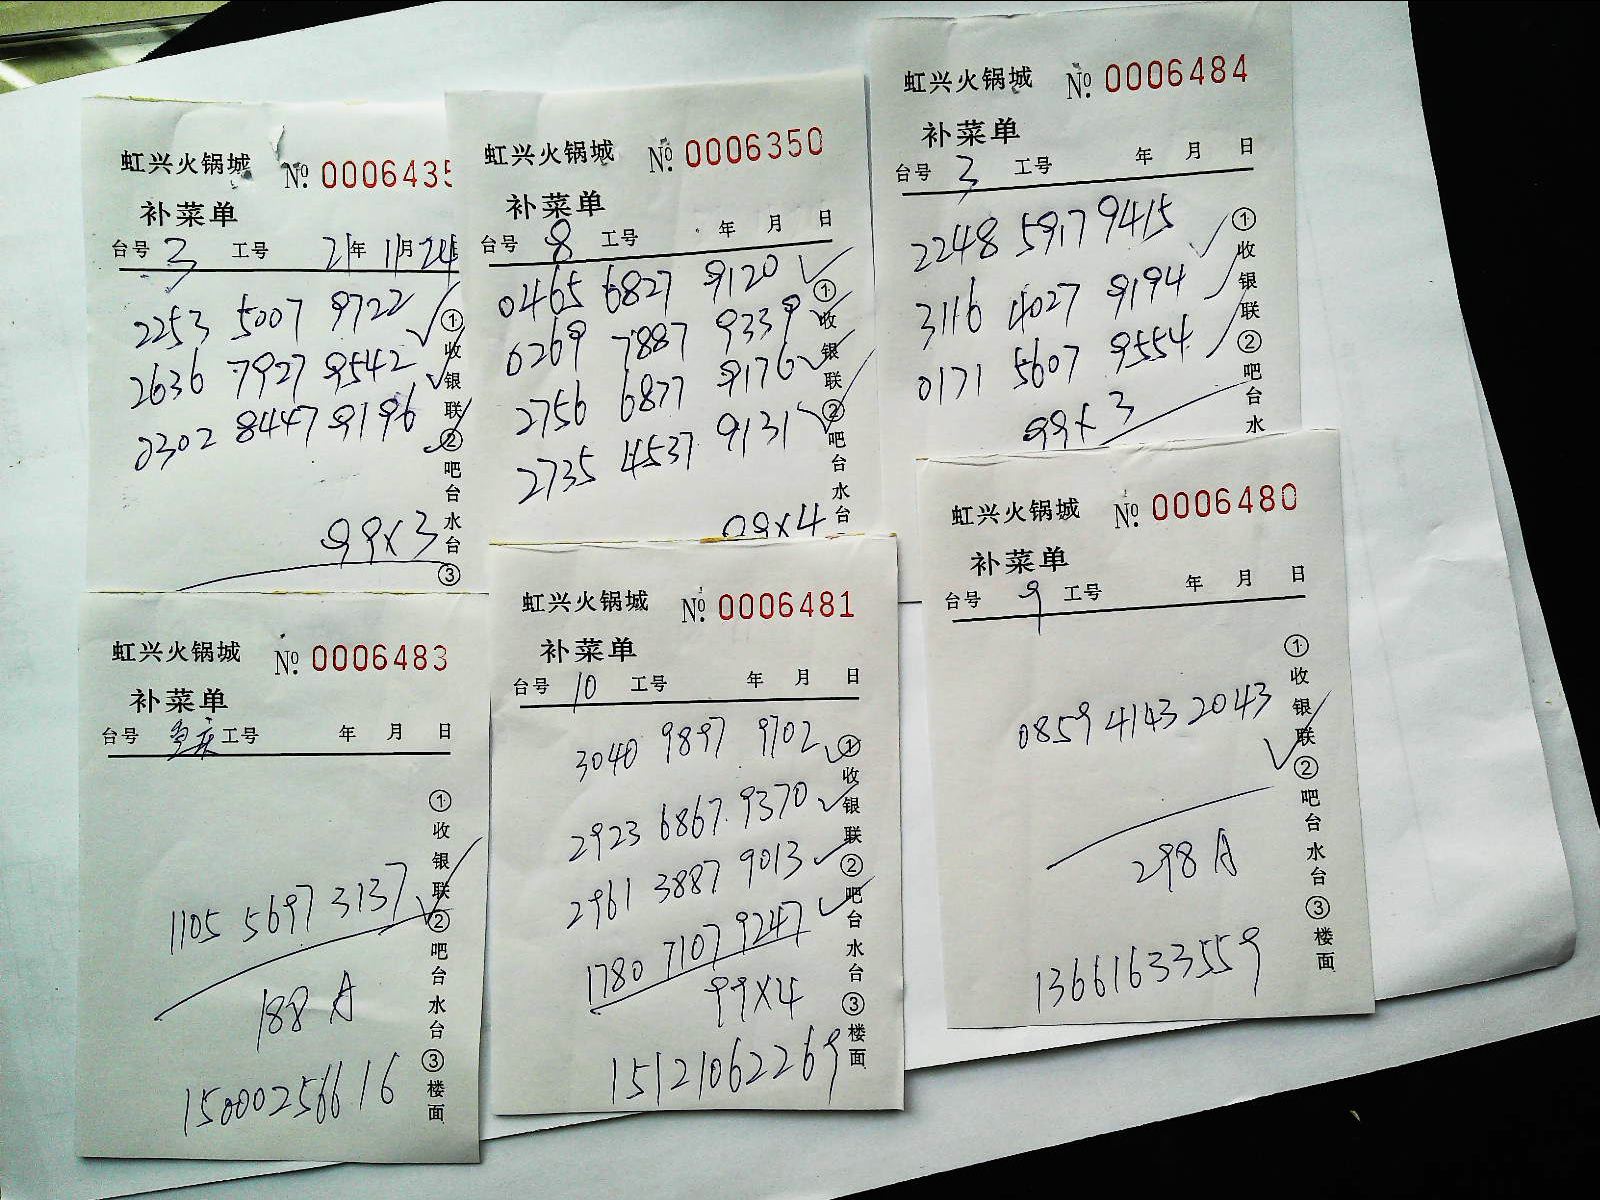 虹兴火锅城 No. 0006435
补菜单
台号 3 工号 21年 11月 24
2253 5007 9722
2636 7927 9542
0302 8447 9196
99x3
①收银联②吧台水台③
虹兴火锅城 No. 0006350
补菜单
台号 8 工号 年 月 日
0465 6827 9120
0269 7887 9339
2756 6877 9176
2735 4537 9131
99x4
①收银联②吧台水台
虹兴火锅城 No. 0006484
补菜单
台号 3 工号 年 月 日
2248 5917 9415
3116 4027 9194
0171 5607 9554
99x3
①收银联②吧台水
虹兴火锅城 No. 0006483
补菜单
台号 重庆 工号 年 月 日
1105 5697 3137
188 A
15000256616
①收银联②吧台水台③楼面
虹兴火锅城 No. 0006481
补菜单
台号 10 工号 年 月 日
3040 9897 9702
2923 6867 9370
2961 3887 9013
1780 7107 9247
99x4
15121062269
①收银联②吧台水台③楼面
虹兴火锅城 No. 0006480
补菜单
台号 9 工号 年 月 日
0859 4143 2043
298 A
13661633559
①收银联②吧台水台③楼面